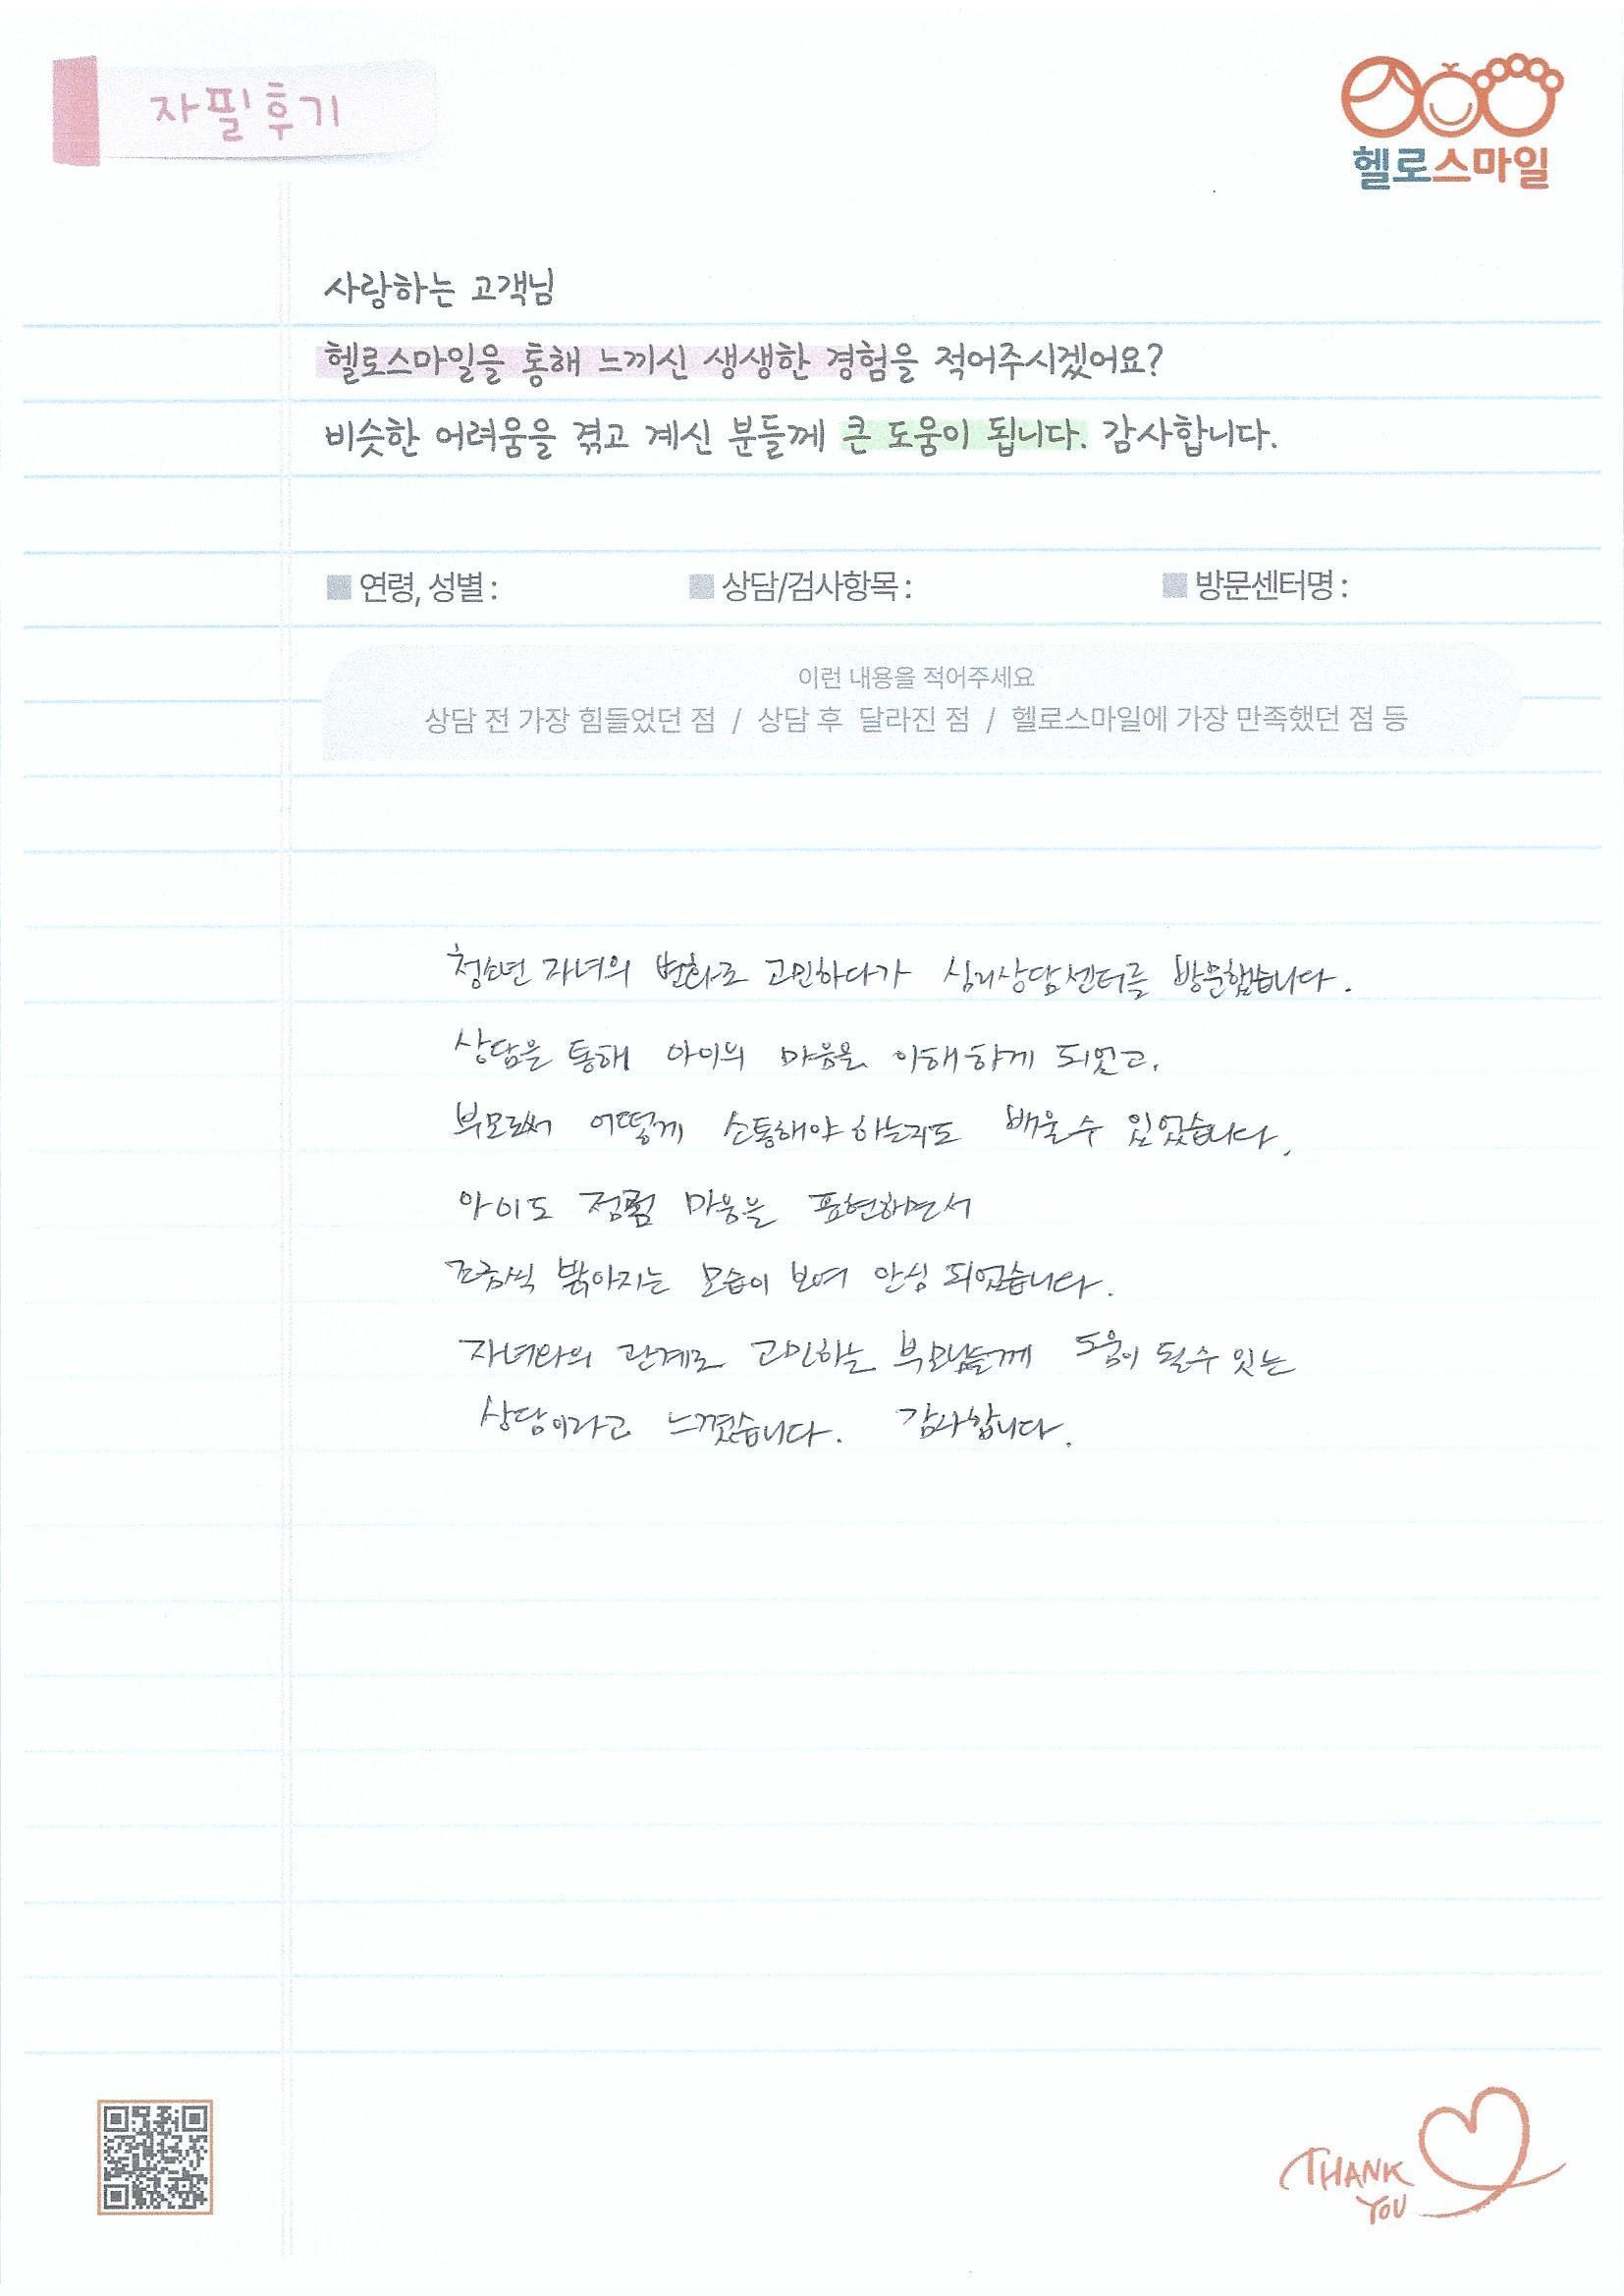 자필후기
헬로스마일
사랑하는 고객님
헬로스마일을 통해 느끼신 생생한 경험을 적어주시겠어요?
비슷한 어려움을 겪고 계신 분들께 큰 도움이 됩니다. 감사합니다.
■ 연령, 성별 : ■ 상담/검사항목 : ■ 방문센터명 :
이런 내용을 적어주세요
상담 전 가장 힘들었던 점 / 상담 후 달라진 점 / 헬로스마일에 가장 만족했던 점 등
청소년 자녀의 변화로 고민하다가 심리상담센터를 방문했습니다.
상담을 통해 아이의 마음을 이해하게 되었고,
부모로써 어떻게 소통해야 하는지도 배울 수 있었습니다.
아이도 점점 마음을 표현하면서
조금씩 밝아지는 모습이 보여 안심 되었습니다.
자녀와의 관계로 고민하는 부모님들께 도움이 될 수 있는
상담이라고 느꼈습니다. 감사합니다.
THANK
YOU